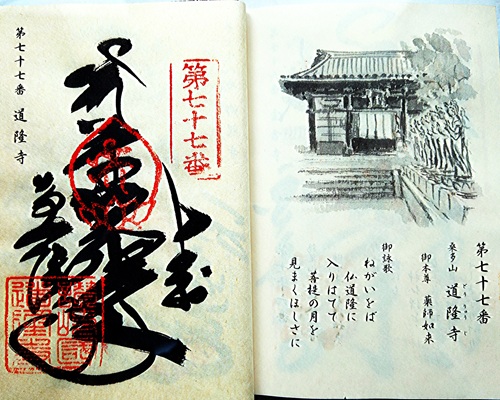 第七十七番
桑多山 道隆寺
どうりゅうじ
御本尊 薬師如来
御詠歌
ねがいをば
仏道隆に
入りはてて
菩提の月を
見まくほしさに
第七十七番 道隆寺
第七十七番
奉
道隆寺